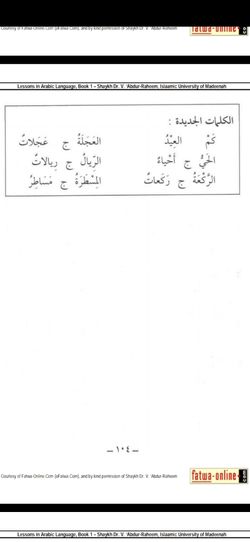 Courtesy of Fatwa-Online.Com (eFatwa.Com), and by kind permission of Shaykh Dr. V. 'Abdur-Raheem
fatwa-online
.com
Lessons in Arabic Language, Book 1 – Shaykh Dr. V. 'Abdur-Raheem, Islaamic University of Madeenah
الكلمات الجديدة :
كَمْ العِيْدُ العَجَلَةُ ج عَجَلَاتٌ
الحَيُّ ج أَحْيَاءٌ الرِّيالُ ج رِيالاتٌ
الرَّكْعَةُ ج رَكَعاتٌ المِسْطَرَةُ ج مَسَاطِرُ
– ١٠٤ –
Courtesy of Fatwa-Online.Com (eFatwa.Com), and by kind permission of Shaykh Dr. V. 'Abdur-Raheem
fatwa-online
.com
Lessons in Arabic Language, Book 1 – Shaykh Dr. V. 'Abdur-Raheem, Islaamic University of Madeenah